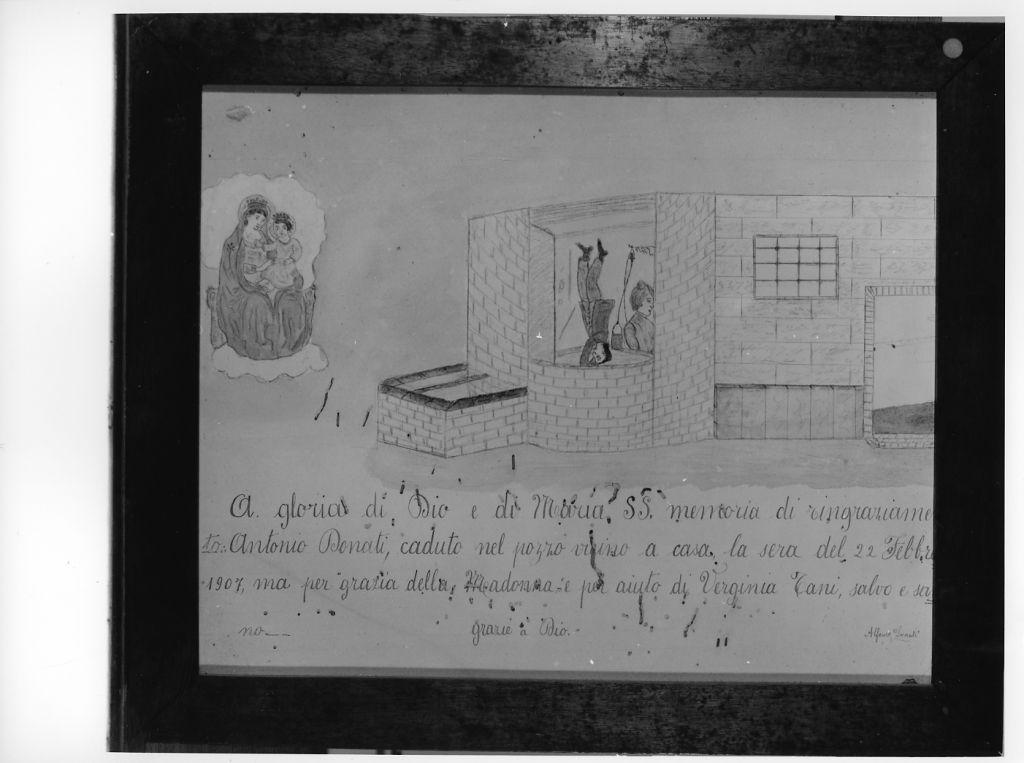 A. gloria di Dio e di Maria SS. memoria di ringraziame
to: Antonio Donati, caduto nel pozzo vicino a casa, la sera del 22 Febbr
1907, ma per grazia della Madonna e per aiuto di Verginia Tani, salvo e sa
no---
grazie a Dio.-
Donati